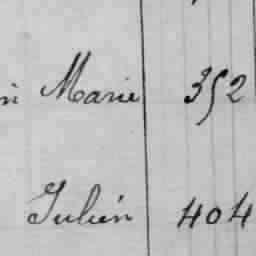 Marie 352
Julien 404